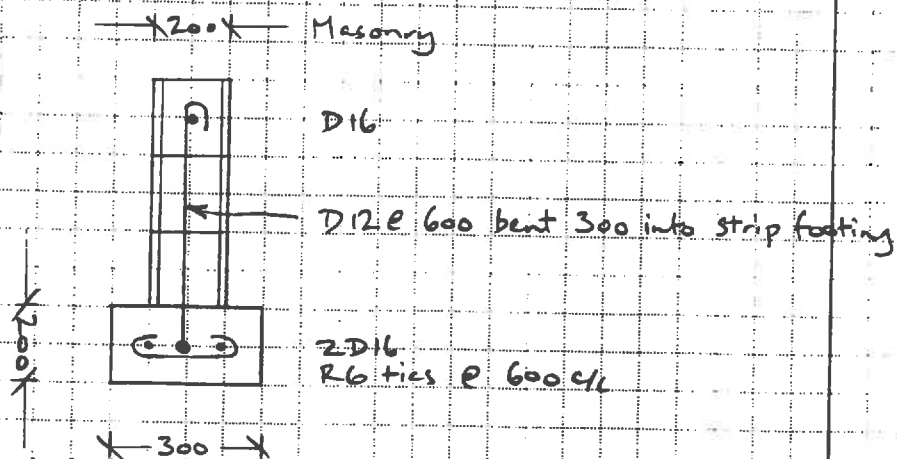 200 Masonry
D16
D12@ 600 bent 300 into strip footing
200
2D16
R6 ties @ 600 c/c
300